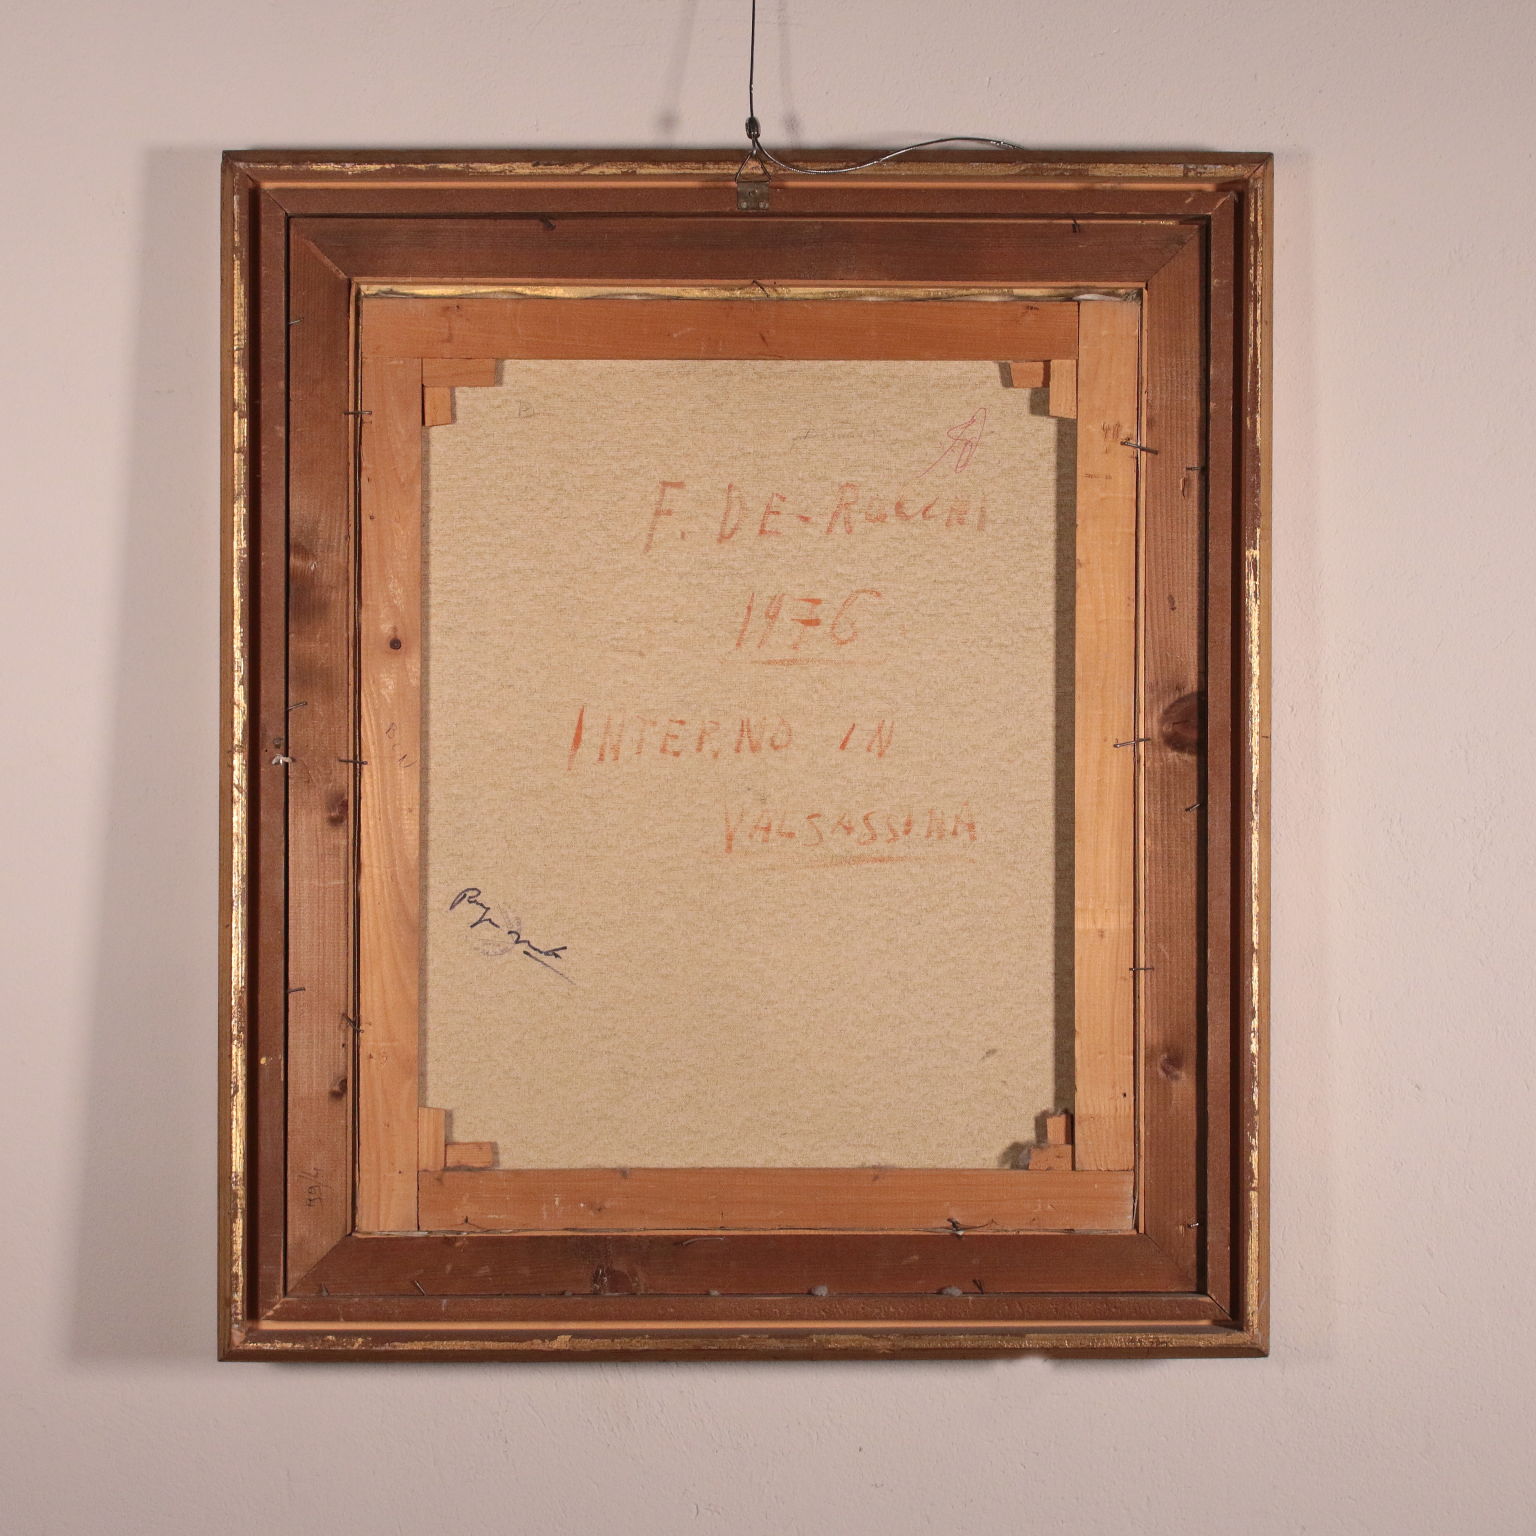 F. DE-ROCCHI
1976
INTERNO IN
VALSASSINA
994